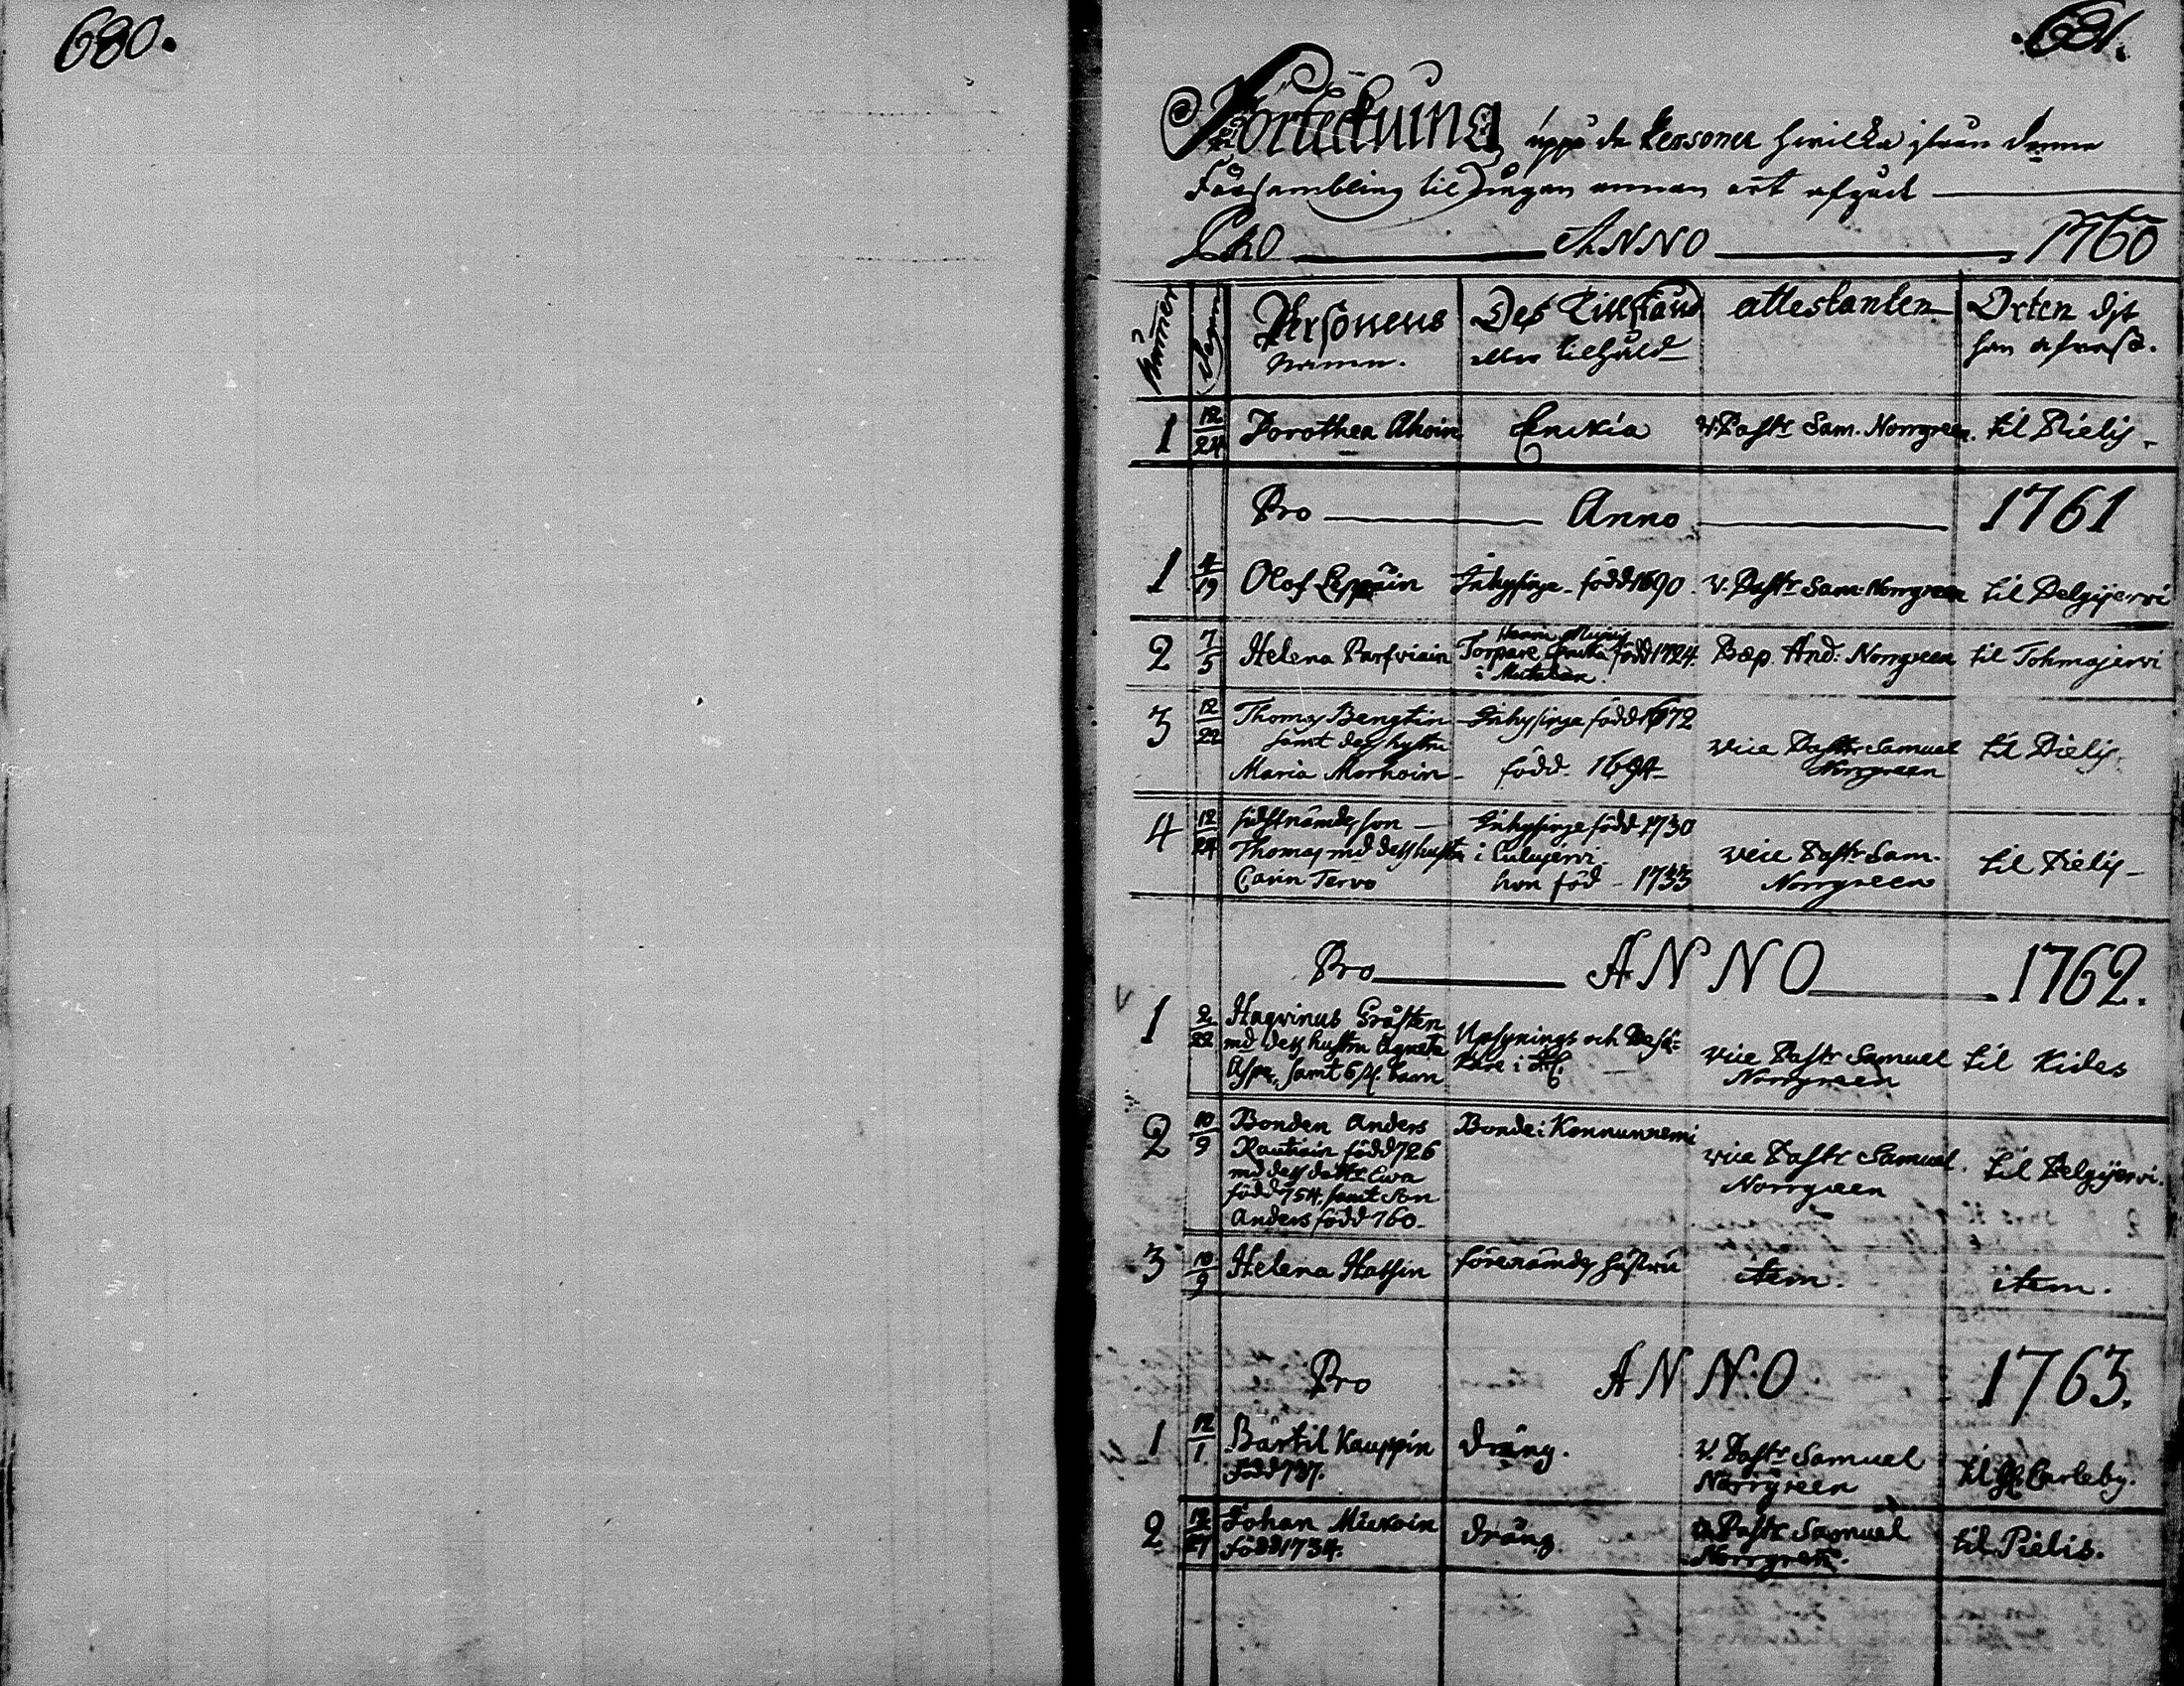 680.
681.
Förteckning uppå de Personer hwilka ifrån denna
Försambling til någon annan ort afgådt
Pro ANNO 1760
Numer Dagen Personens namn. Des Tillstånd eller tilhåld attestanten Orten dijt han afrest.
1 12/24 Dorothea Ahoin Enckia V. Past: Sam. Norrgreen. til Pielis
Pro Anno 1761
1 4/19 Olof Leppäin Inhysinge född 1690. V. Past: Sam: Norrgreen til Pelgijervi
2 7/5 Helena Parfviain Torpare Encka född 1724. i Mutalax. Bap. And: Norrgreen til Tohmajervi
3 12/22 Thomas Bengtin Inhysinge född 1672
samt dess hustru
Maria Morhoin född 1694 vice Past: Samuel Norrgreen til Pielis
4 12/24 sidstnämdes son Inhysinge född 1730
Thomas md dess hustru i Culujervi.
Carin Tervo hon född 1733 vice Past: Sam. Norrgreen til Pielis
Pro ANNO 1762.
1 2/22 Haqvinus Gråsten
md dess hustru Agneta
Aspe, samt 6 st. barn Upsynings och Besökare i vice Past: Samuel Norrgreen til Kides
2 10/9 Bonden Anders
Rautiain född 726
md dess dottr Ewa
född 754, samt son
Anders född 760. Bonde i Konnunnemi vice Past: Samuel Norrgreen til Pelgijervi.
3 10/9 Helena Hatsin förenämdes hustru item. item.
Pro ANNO 1763.
1 12/1 Bärtil Kauppin
född 737. dräng. V. Past: Samuel Norrgreen til Gl. Carleby.
2 12/27 Johan Mickoin
född 1734. dräng. V. Past: Samuel Norrgreen. til Pielis.